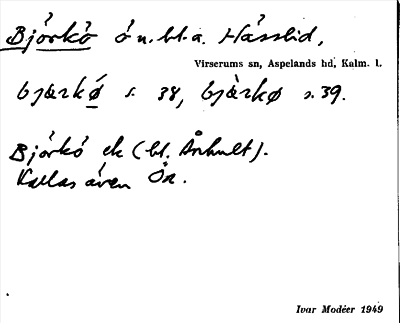 Björkö ön. bl. a. Hässlid,
Virserums sn, Aspelands hd, Kalm. l.
bjærkǿ s. 38, bjæ̀rkø s. 39.
Björkö ek (bl. Århult).
Kallas även Ön.
Ivar Modéer 1949